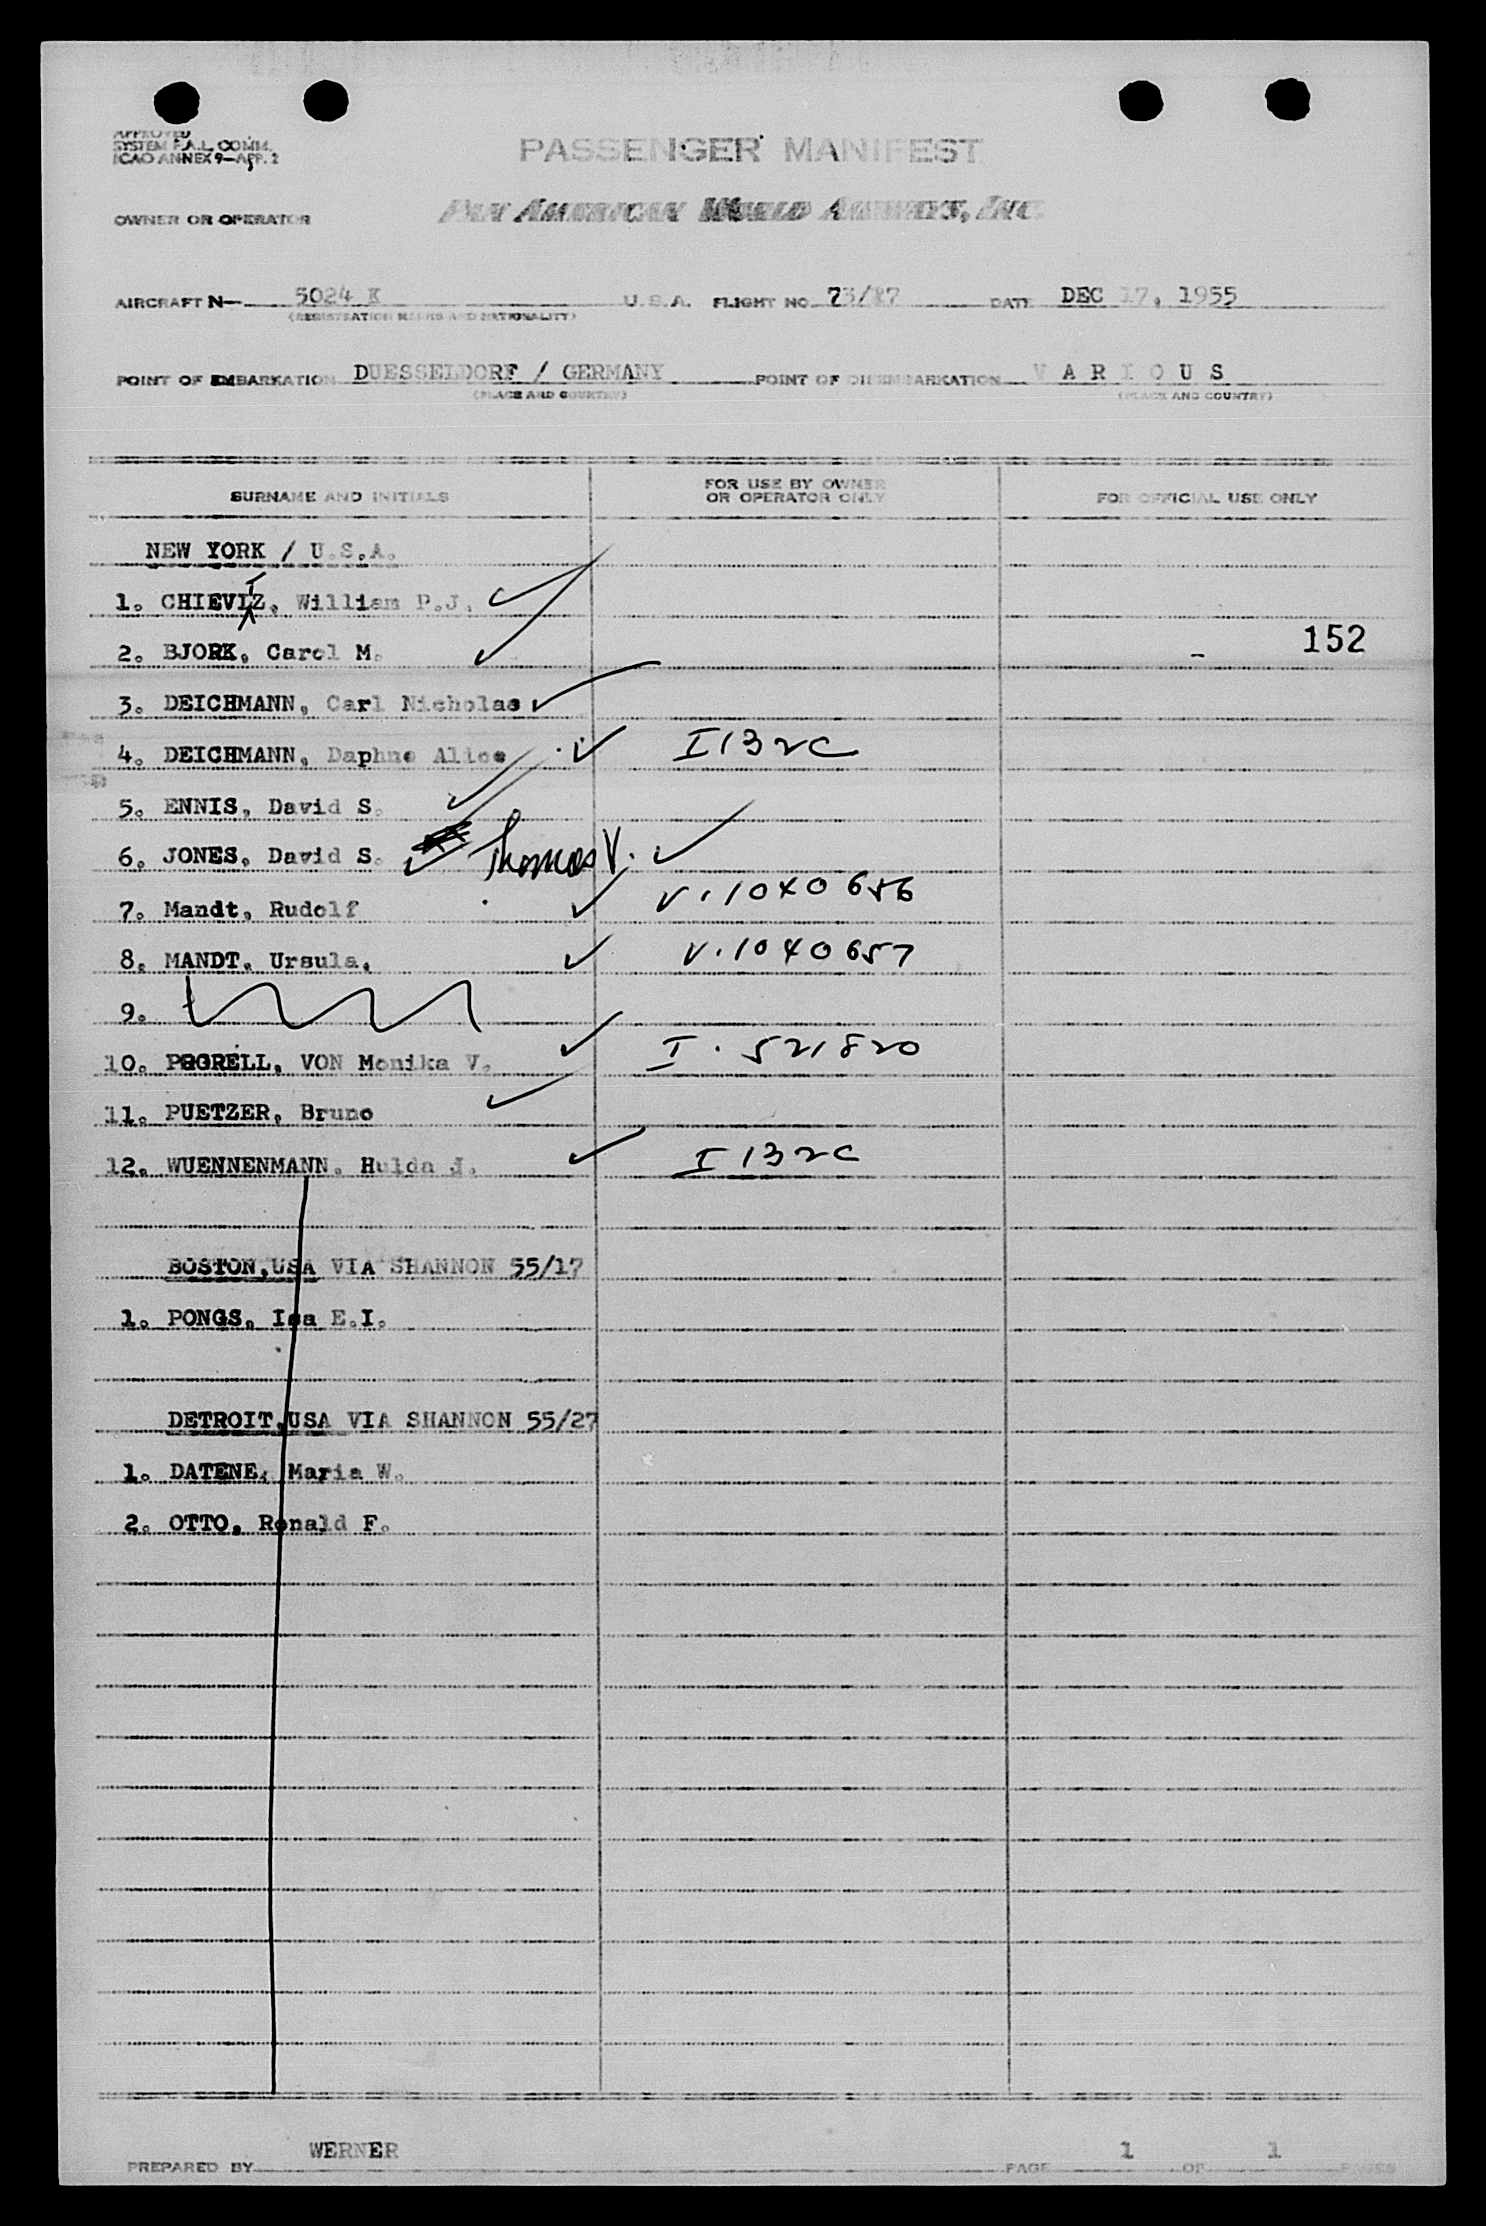 APPROVED
SYSTEM F.A.L. COMM.
ICAO ANNEX 9—APP. 2
PASSENGER MANIFEST
OWNER OR OPERATOR PAN AMERICAN WORLD AIRWAYS, INC.
AIRCRAFT N— 5024 K U.S.A. FLIGHT NO. 73/17 DATE DEC 17, 1955
(REGISTRATION MARKS AND NATIONALITY)
POINT OF EMBARKATION DUESSELDORF / GERMANY POINT OF DISEMBARKATION V A R I O U S
(PLACE AND COUNTRY) (PLACE AND COUNTRY)
SURNAME AND INITIALS FOR USE BY OWNER OR OPERATOR ONLY FOR OFFICIAL USE ONLY
NEW YORK / U.S.A.
1. CHIEVIZ, William P.J.
2. BJORK, Carol M. 152
3. DEICHMANN, Carl Nicholas
4. DEICHMANN, Daphne Alice I 132C
5. ENNIS, David S.
6. JONES, David S. Thomas V.
7. Mandt, Rudolf V.1040656
8. MANDT, Ursula, V.1040657
9.
10. POGRELL, VON Monika V. I. 521820
11. PUETZER, Bruno
12. WUENNENMANN, Hulda J. I 132C
BOSTON,USA VIA SHANNON 55/17
1. PONGS, Isa E.I.
DETROIT,USA VIA SHANNON 55/27
1. DATENE, Maria W.
2. OTTO, Ronald F.
PREPARED BY WERNER PAGE 1 OF 1 PAGES